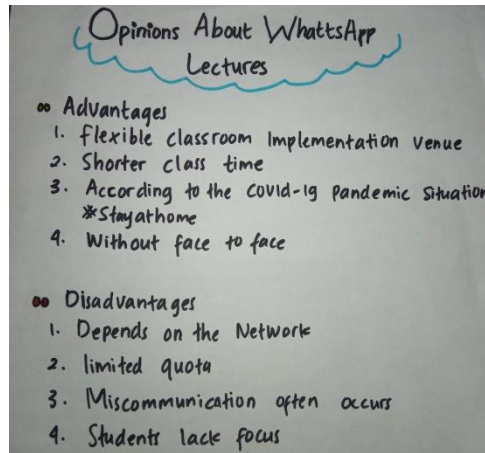 Opinions About WhattsApp
Lectures
Advantages
1. Flexible classroom Implementation Venue
2. Shorter class time
3. According to the Covid-19 Pandemic Situation
*Stayathome
4. Without face to face
Disadvantages
1. Depends on the Network
2. limited quota
3. Miscommunication often occurs
4. Students lack focus